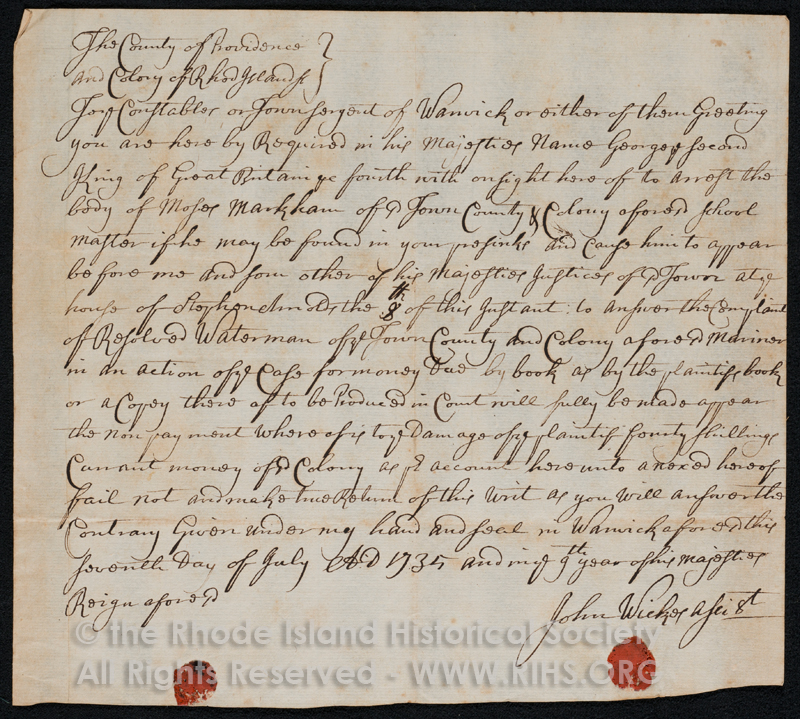 The County of Providence
and Colony of Rhod Island ss
To ye Constables or Town sergent of Warwick or either of them Greeting
you are here by Required in his Majesties Name George ye second
King of Great Britain &c fourth with on sight here of to arrest the
body of Moses Markham of sd Town County & Colony afore sd school
master if he may be found in your presinks and Cause him to appear
before me and som other of his Majesties Justices of sd Town at ye
house of Stephen Arnolds the 8th of this Instant: to answer the Complaint
of Resolved Waterman of ye Town County and Colony afore sd Mariner
in an action of ye Case for money Due by book as by the plaintifs book
or a Copey there of to be Produced in Court will fully be made appear
the non payment where of is to ye Damage of ye plaintif fourty shillings
Currant money of sd Colony as pr account here unto anexed here of
fail not and make true Return of this writ as you will answer the
Contrary Given under my hand and seal in Warwick afore sd this
seventh Day of July AD 1735 and in ye 9th year of his majesties
Reign afore sd
John Wickes
© the Rhode Island Historical Society
All Rights Reserved - WWW.RIHS.ORG